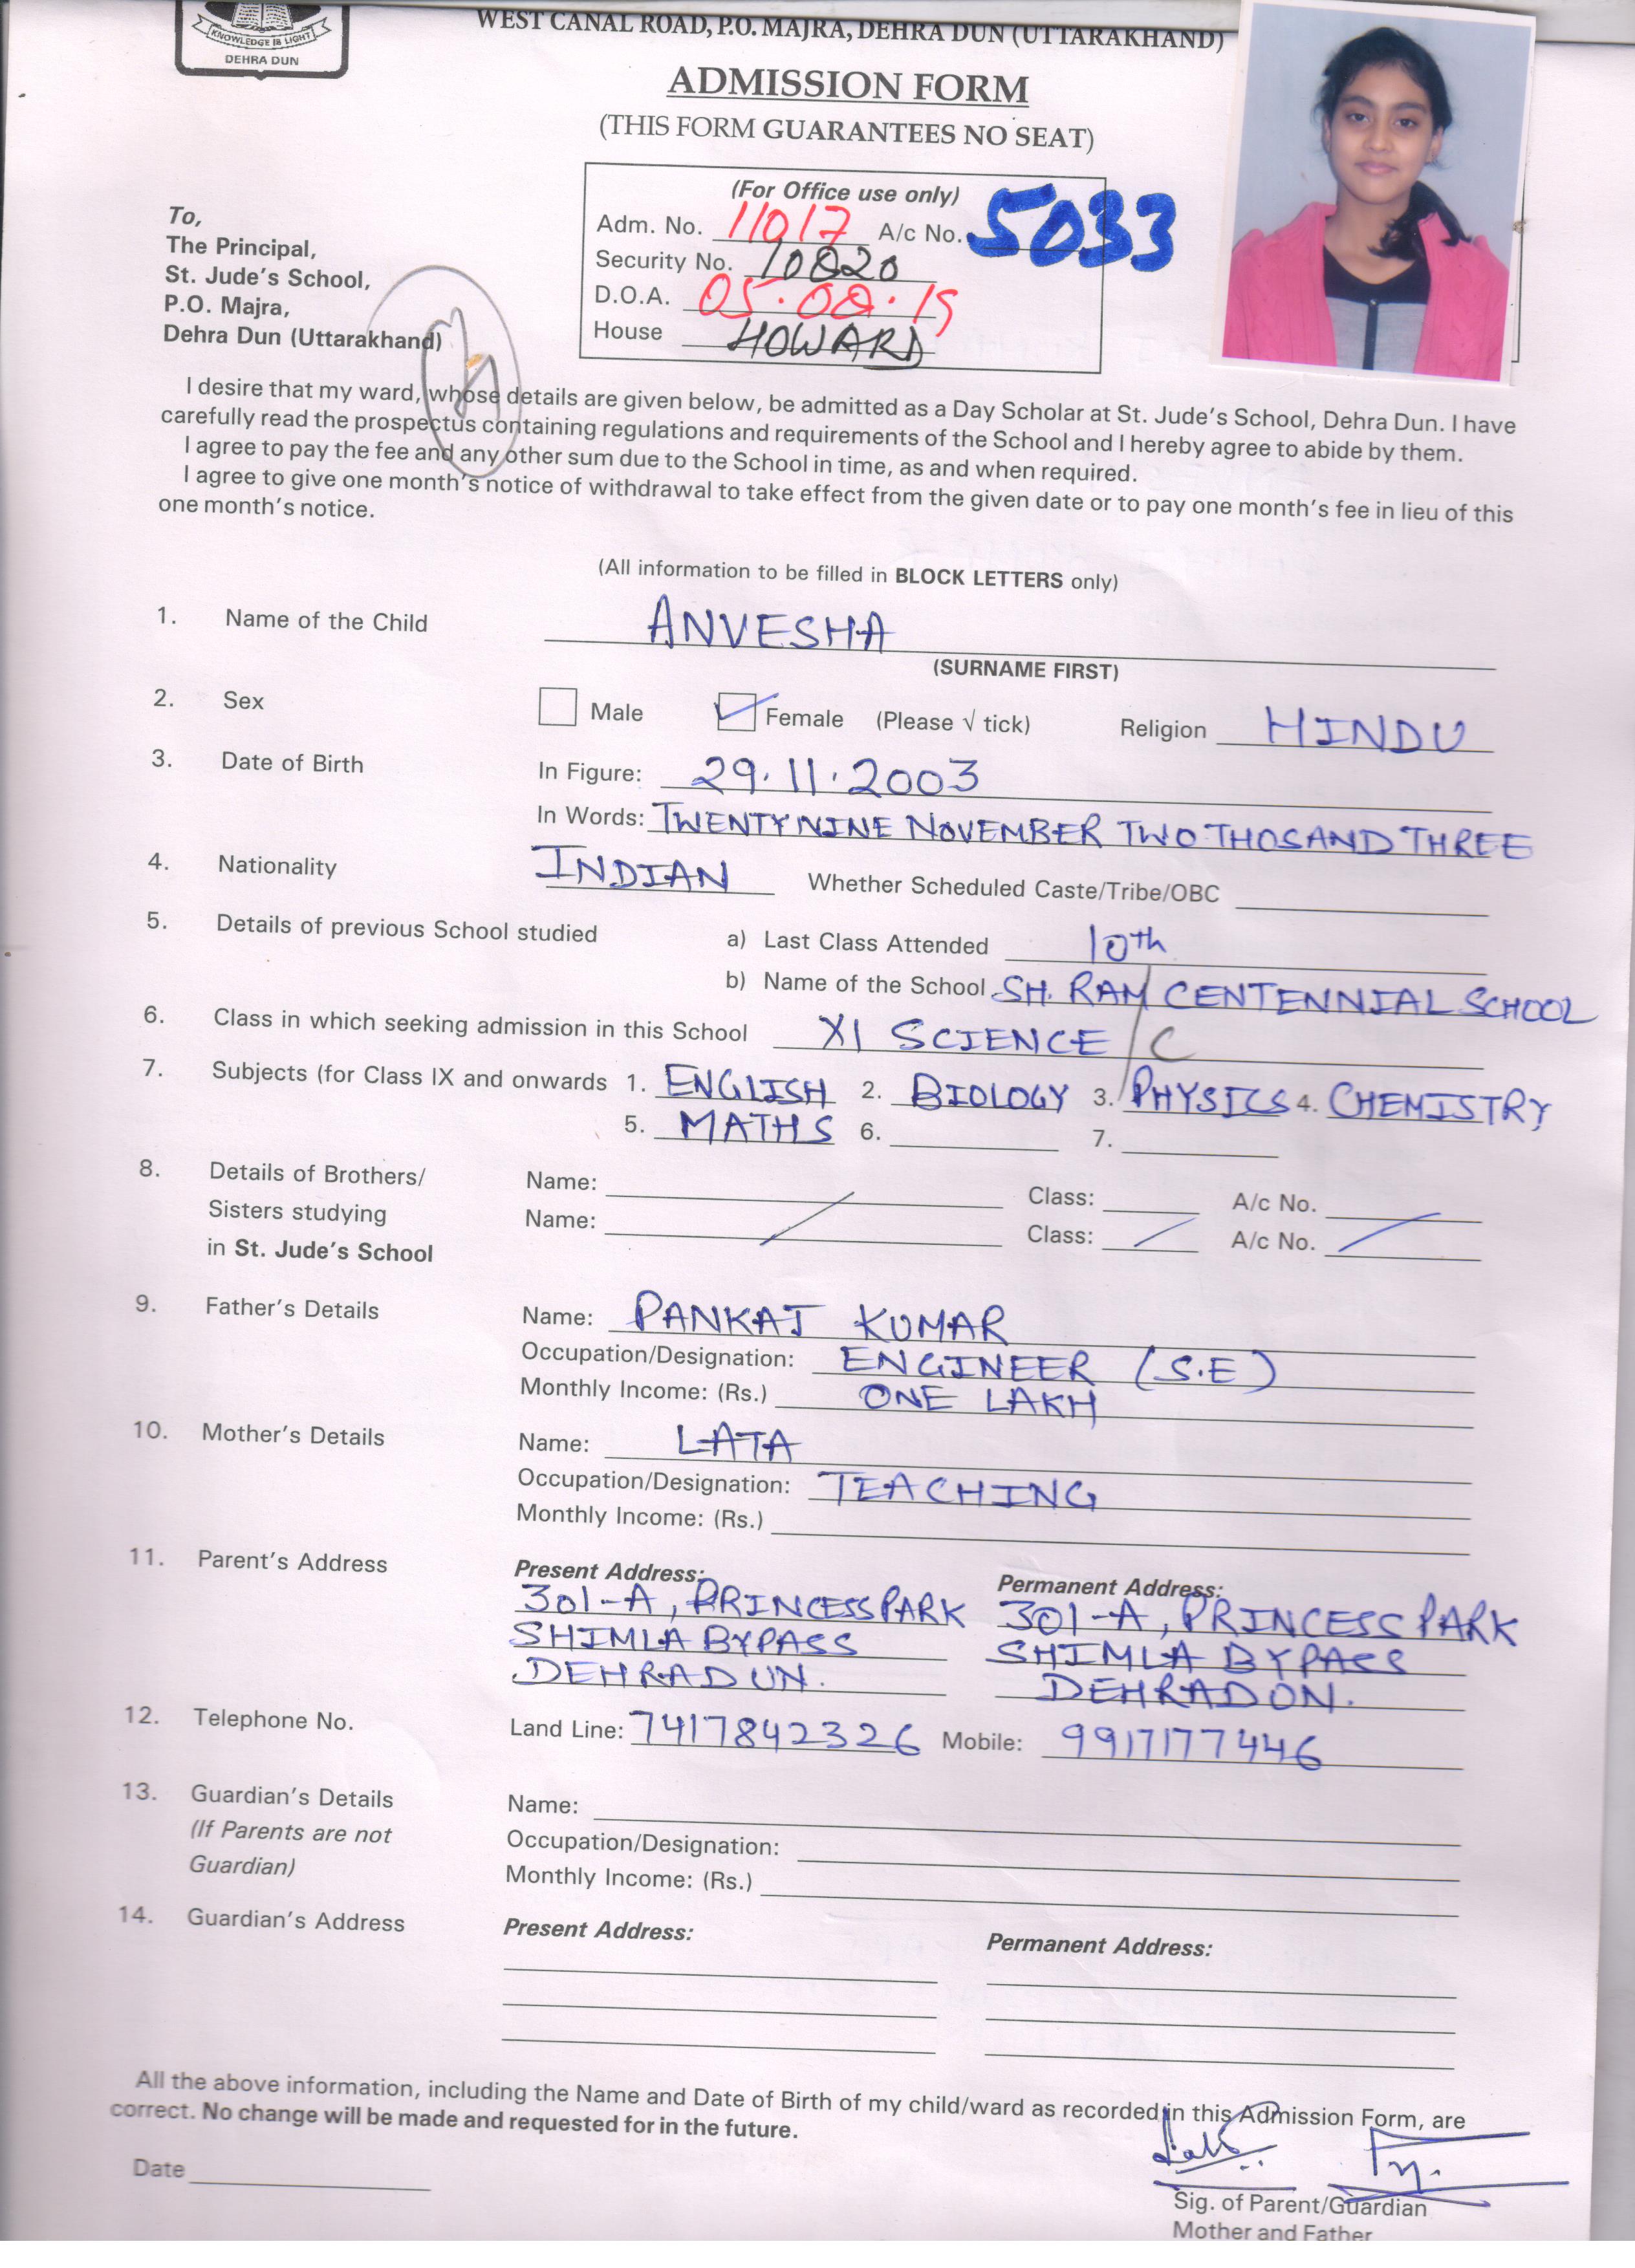 KNOWLEDGE IS LIGHT
DEHRA DUN
WEST CANAL ROAD, P.O. MAJRA, DEHRA DUN (UTTARAKHAND)
ADMISSION FORM
(THIS FORM GUARANTEES NO SEAT)
(For Office use only)
Adm. No. 11017 A/c No. 5033
Security No. 10820
D.O.A.
House HOWARD
To,
The Principal,
St. Jude's School,
P.O. Majra,
Dehra Dun (Uttarakhand)
I desire that my ward, whose details are given below, be admitted as a Day Scholar at St. Jude's School, Dehra Dun. I have
carefully read the prospectus containing regulations and requirements of the School and I hereby agree to abide by them.
I agree to pay the fee and any other sum due to the School in time, as and when required.
I agree to give one month's notice of withdrawal to take effect from the given date or to pay one month's fee in lieu of this
one month's notice.
(All information to be filled in BLOCK LETTERS only)
1. Name of the Child ANVESHA
(SURNAME FIRST)
2. Sex Male Female (Please √ tick) Religion HINDU
3. Date of Birth In Figure: 29.11.2003
In Words: TWENTY NINE NOVEMBER TWO THOSAND THREE
4. Nationality INDIAN Whether Scheduled Caste/Tribe/OBC
5. Details of previous School studied a) Last Class Attended 10th
b) Name of the School SH. RAM CENTENNIAL SCHOOL
6. Class in which seeking admission in this School XI SCIENCE / C
7. Subjects (for Class IX and onwards 1. ENGLISH 2. BIOLOGY 3. PHYSICS 4. CHEMISTRY
5. MATHS 6. 7.
8. Details of Brothers/ Name: Class: A/c No.
Sisters studying Name: Class: A/c No.
in St. Jude's School
9. Father's Details Name: PANKAJ KUMAR
Occupation/Designation: ENGINEER (S.E)
Monthly Income: (Rs.) ONE LAKH
10. Mother's Details Name: LATA
Occupation/Designation: TEACHING
Monthly Income: (Rs.)
11. Parent's Address Present Address: Permanent Address:
301-A, PRINCESS PARK 301-A, PRINCESS PARK
SHIMLA BYPASS SHIMLA BYPASS
DEHRADUN. DEHRADUN.
12. Telephone No. Land Line: 7417842326 Mobile: 9917177446
13. Guardian's Details Name:
(If Parents are not Occupation/Designation:
Guardian) Monthly Income: (Rs.)
14. Guardian's Address Present Address: Permanent Address:
All the above information, including the Name and Date of Birth of my child/ward as recorded in this Admission Form, are
correct. No change will be made and requested for in the future.
Date
Sig. of Parent/Guardian
Mother and Father